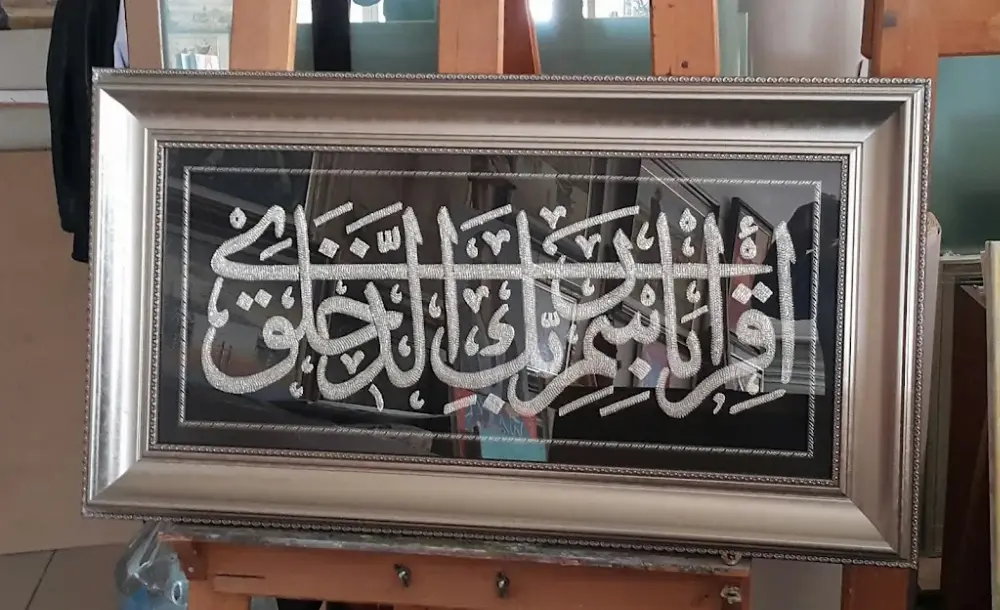 اقْرَأْ بِاسْمِ رَبِّكَ الَّذِي خَلَقَ